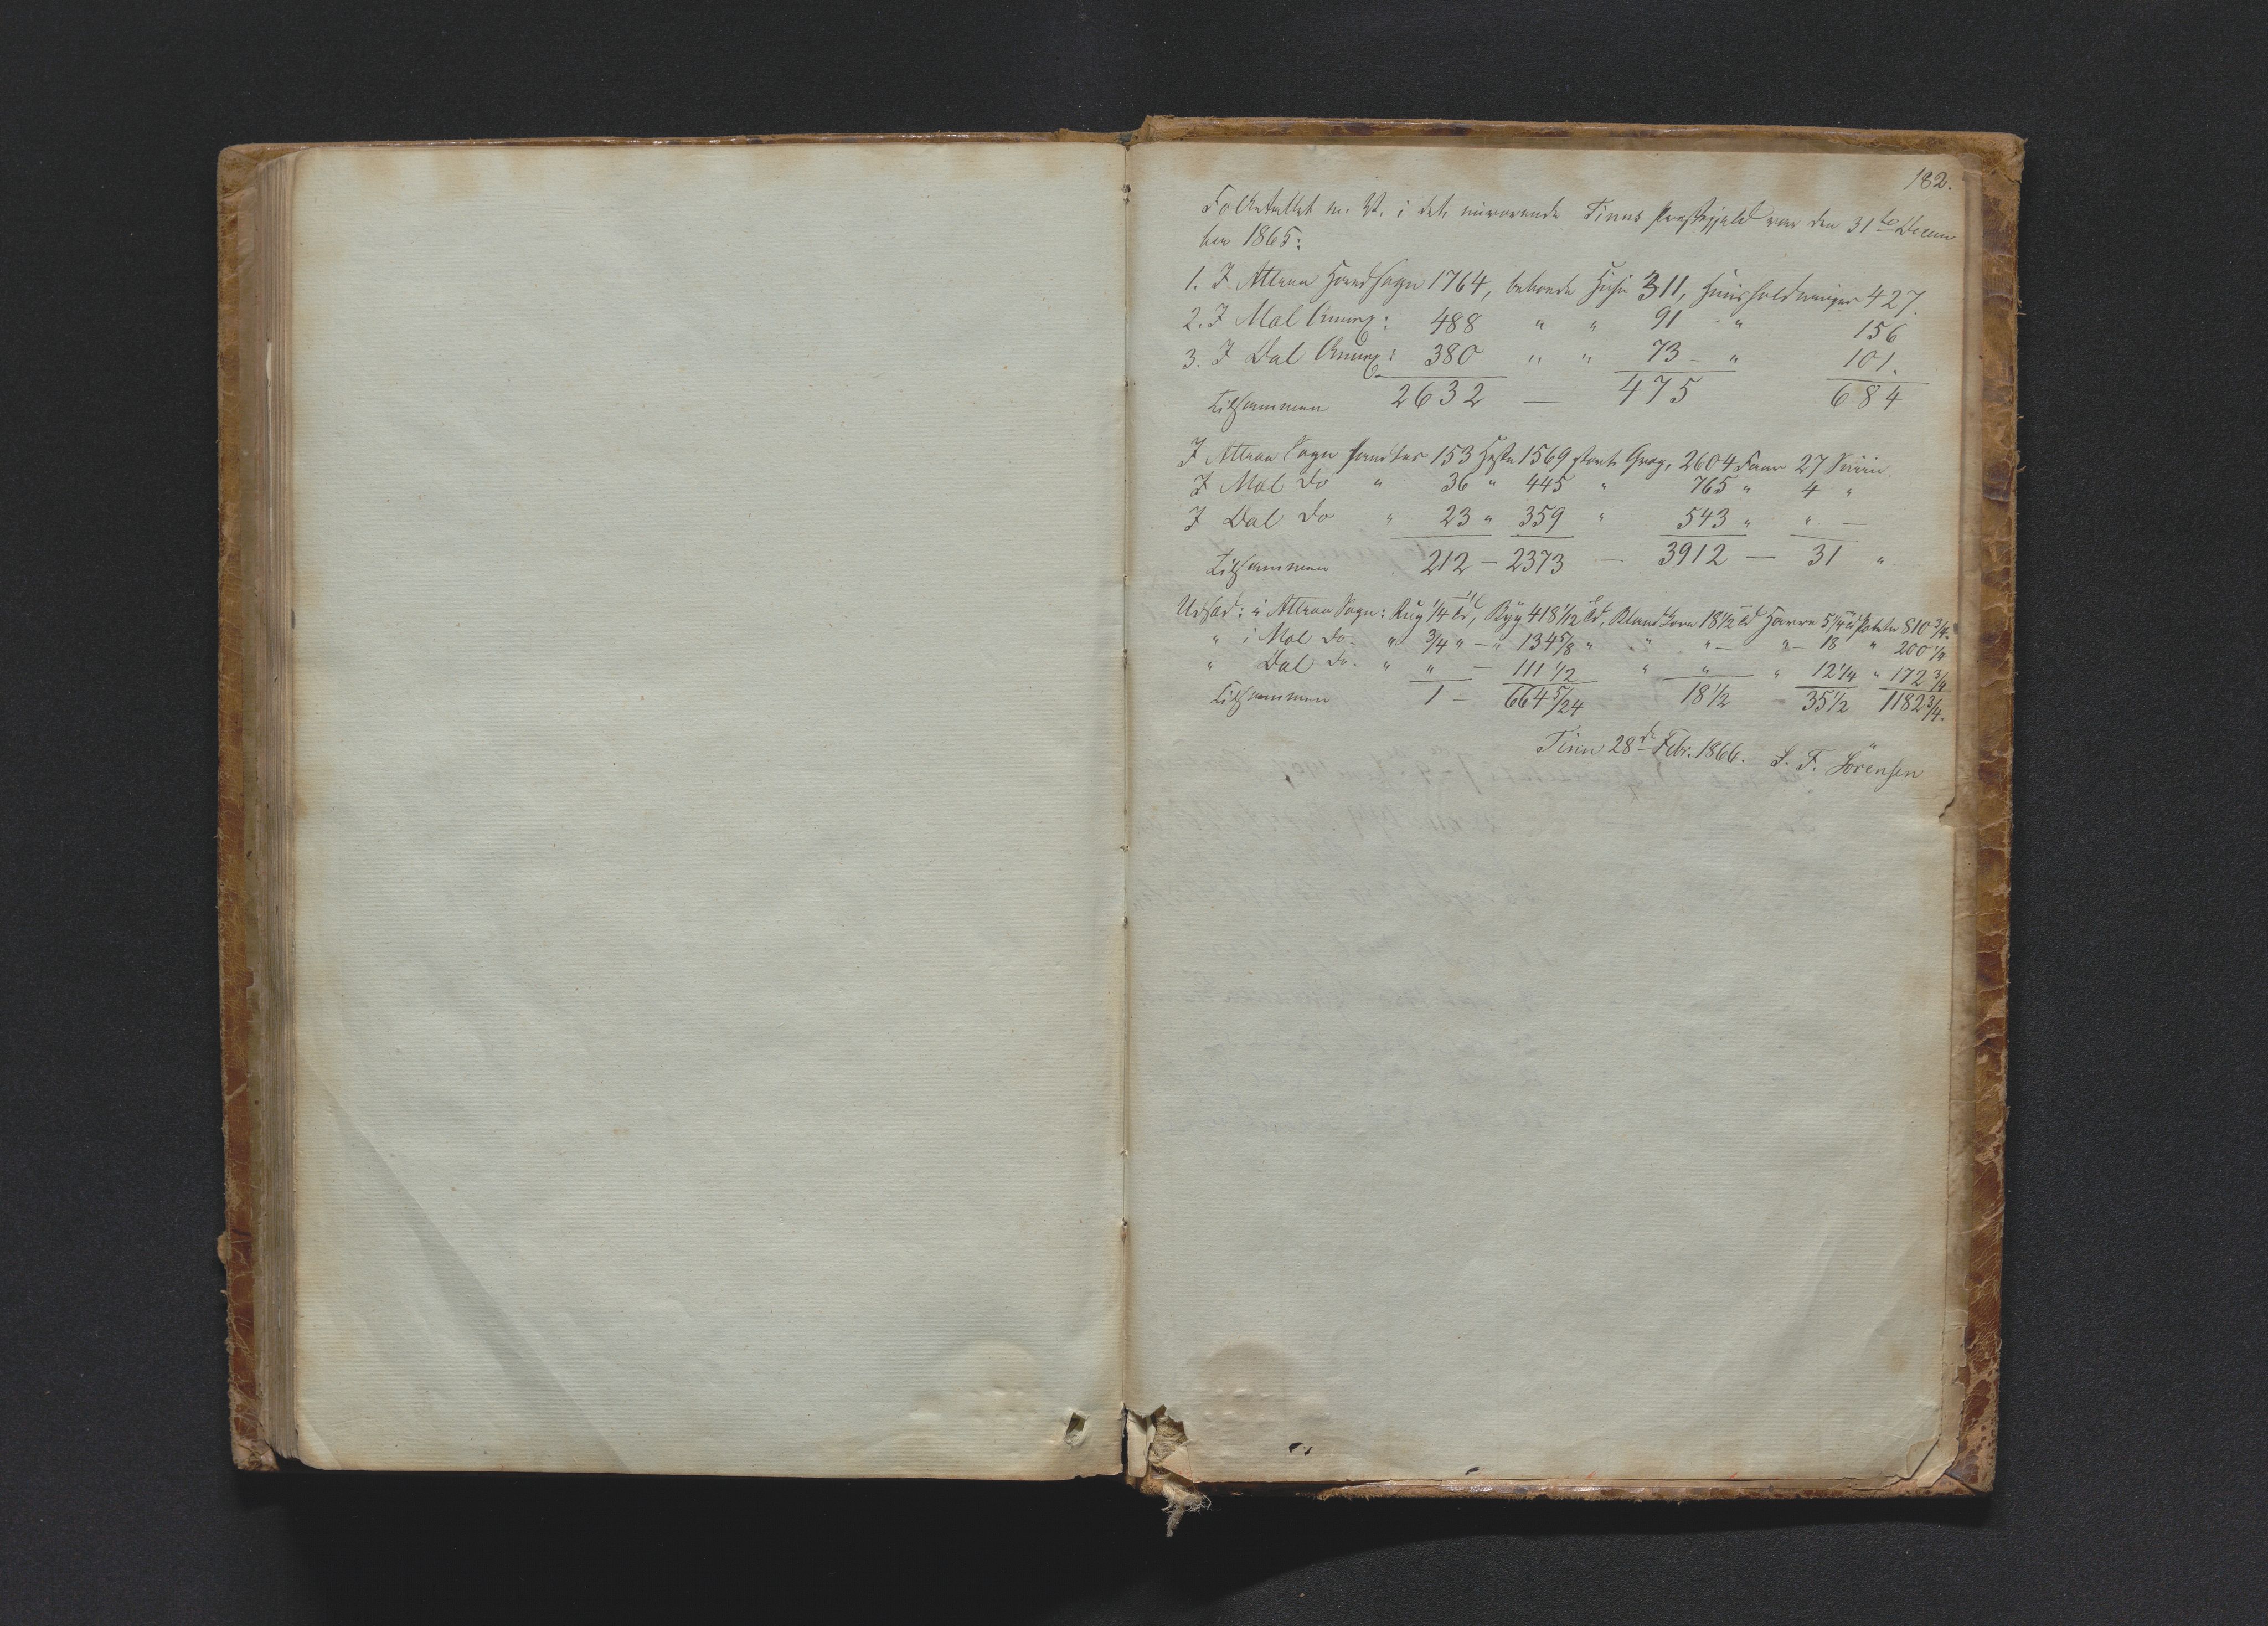 182.
Folketallet m. V. i det nuværende Tinns Præstegjeld var den 31te Decem
ber 1865:
1. I Attraa Hovedsogn 1764, beboede Huse 311, Huusholdninger 427.
2. I Mæl Annex: 488 " " 91 " 156
3. I Dal Annex: 380 " " 73 - " 101.
Tilsammen 2632 — 475 684
I Attraa Sogn fandtes 153 Heste 1569 stort Qvæg, 2604 Faar 27 Sviin.
I Mæl do " 36 " 445 " 765 " 4 "
I Dal do " 23 " 359 " 543 " " —
Tilsammen 212 — 2373 — 3912 — 31 "
Udsæd: i Attraa Sogn: Rug 1/4 Td, Byg 418 1/12 Td, Blandkorn 18 1/2 Td Havre 5 1/4 Td Poteter 810 3/4.
" i Mæl do. " 3/4 " — " 134 5/8 " " " — " — 18 " 200 1/4
" Dal do. " " — 111 1/2 " " " 12 1/4 " 172 3/4
Tilsammen 1 — 664 5/24 18 1/2 - 35 1/2 1182 3/4.
Tinn 28de Febr. 1866. S. F. Sörensen